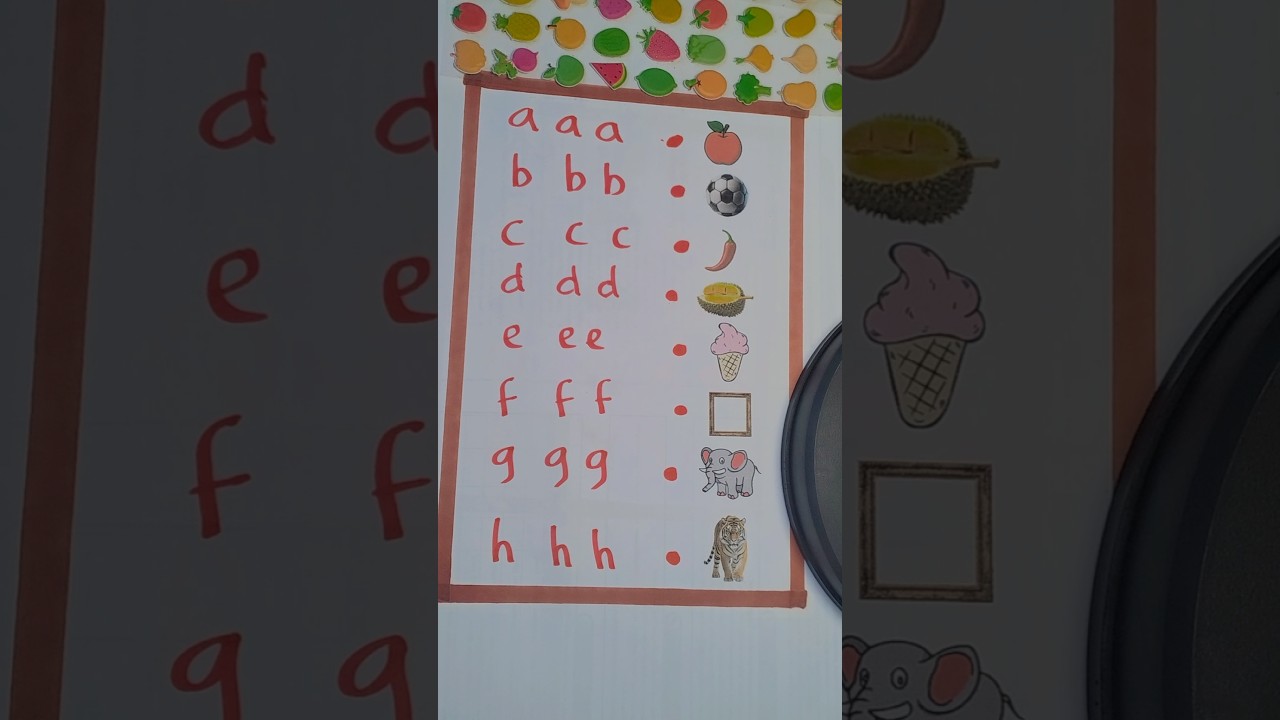 a a a
b b b
c c c
d d d
e e e
f f f
g g g
h h h